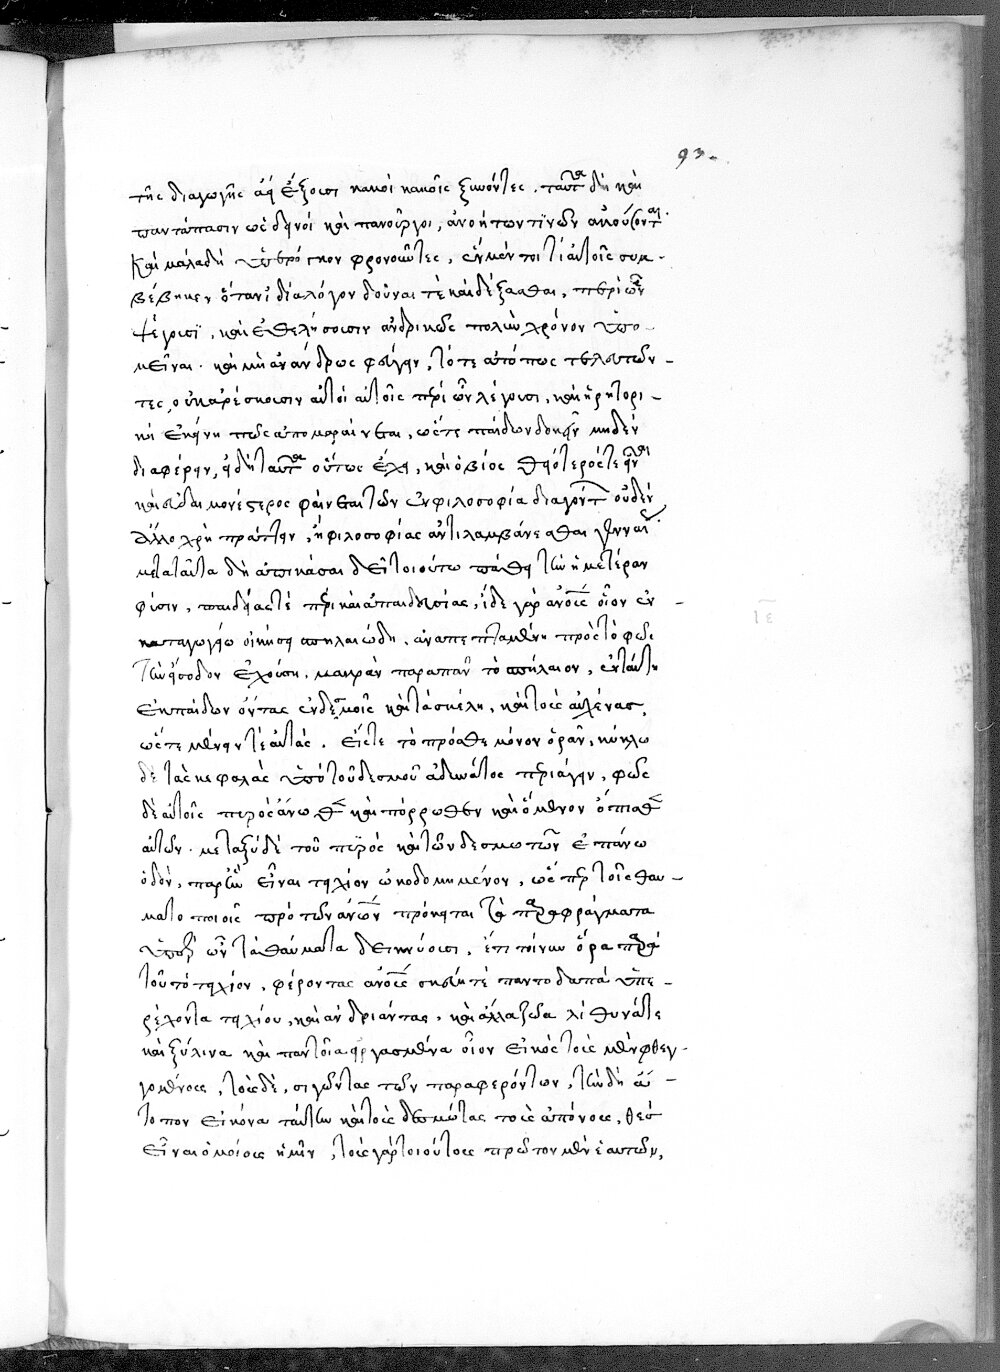 93.
τῆς διαγωγῆς ἀεὶ ἕξουσι κακοὶ κακοῖς ξυνόντες. ταῦτα δὴ καὶ
παντάπασιν ὡς δεινοὶ καὶ πανοῦργοι, ἀνοήτων τινῶν ἀκούσονται.
Καὶ μάλα δὴ φρονοῦντες, ἓν μέντοι τι αὐτοῖς συμ-
βέβηκεν ὅταν ἰδίᾳ λόγον δοῦναι τὲ καὶ δέξασθαι, περὶ ὧν
ψέγουσι, καὶ ἐθελήσουσιν ἀνδρικῶς πολὺν χρόνον ὑπο-
μεῖναι. καὶ μὴ ἀνάνδρως φεύγειν, τότε ἀτόπως τελευτῶν-
τες, οὐκ ἀρέσκουσιν αὐτοὶ αὐτοῖς περὶ ὧν λέγουσι, καὶ ἡ ῥητορι-
κὴ ἐκείνη πως ἀπομαραίνεται, ὥστε παίδων δοκεῖν μηδὲν
διαφέρειν, εἰ δὴ ταῦτα οὕτως ἔχει, καὶ ὁ βίος θειότερός τε εἶναι
καὶ εὐδαιμονέστερος φαίνεται τῶν ἐν φιλοσοφίᾳ διαγόντων οὐδὲν
ἄλλο χρὴ πράττειν, ἢ φιλοσοφίας ἀντιλαμβάνεσθαι γενναίως.
μετὰ ταῦτα δὴ ἀπεικάσαι δεῖ τοιούτῳ πάθει τὴν ἡμετέραν
φύσιν, παιδείας τὲ πέρι καὶ ἀπαιδευσίας, ἴδε γὰρ ἀνθρώπους οἷον ἐν
καταγωγείῳ οἰκήσει σπηλαιώδει. ἀναπεπταμένην πρὸς τὸ φῶς
τὴν εἴσοδον ἐχούσῃ, μακρὰν παρὰ πᾶν τὸ σπήλαιον, ἐν ταύτῃ
ἐκ παίδων ὄντας ἐν δεσμοῖς καὶ τὰ σκέλη, καὶ τοὺς αὐχένας,
ὥστε μένειν τὲ αὐτὰς. εἴς τε τὸ πρόσθε μόνον ὁρᾶν, κύκλῳ
δὲ τὰς κεφαλὰς ὑπὸ τοῦ δεσμοῦ ἀδυνάτος περιάγειν, φῶς
δὲ αὐτοῖς πυρὸς ἄνωθεν καὶ πόρρωθεν καὶ ὄμενον ὄπισθεν
αὐτῶν. μεταξὺ δὲ τοῦ πυρὸς καὶ τῶν δεσμωτῶν ἐπάνω
ὁδὸν, παρ' ἣν εἶναι τειχίον ᾠκοδομημένον, ὥσπερ τοῖς θαυ-
ματοποιοῖς πρὸ τῶν ἀνθρώπων πρόκειται τὰ παραφράγματα
ὑπὲρ ὧν τὰ θαύματα δεικνύουσι, ἔτι τοίνυν ὅρα παρὰ
τοῦτο τειχίον, φέροντας ἀνθρώπους σκεύη τὲ παντοδαπὰ ὑπε-
ρέχοντα τειχίου, καὶ ἀνδριάντας, καὶ ἄλλα ζῶα λίθινά τε
καὶ ξύλινα καὶ παντοῖα εἰργασμένα οἷον εἰκὸς τοὺς μὲν φθεγ-
γομένους, τοὺς δὲ, σιγῶντας τῶν παραφερόντων, τὴν δὴ ἄ-
τοπον εἰκόνα ταύτην καὶ τοὺς δεσμώτας τοὺς ἀτόπους, θὲς
εἶναι ὁμοίους ἡμῖν, τοὺς γὰρ τοιούτους πρῶτον μὲν ἑαυτῶν,